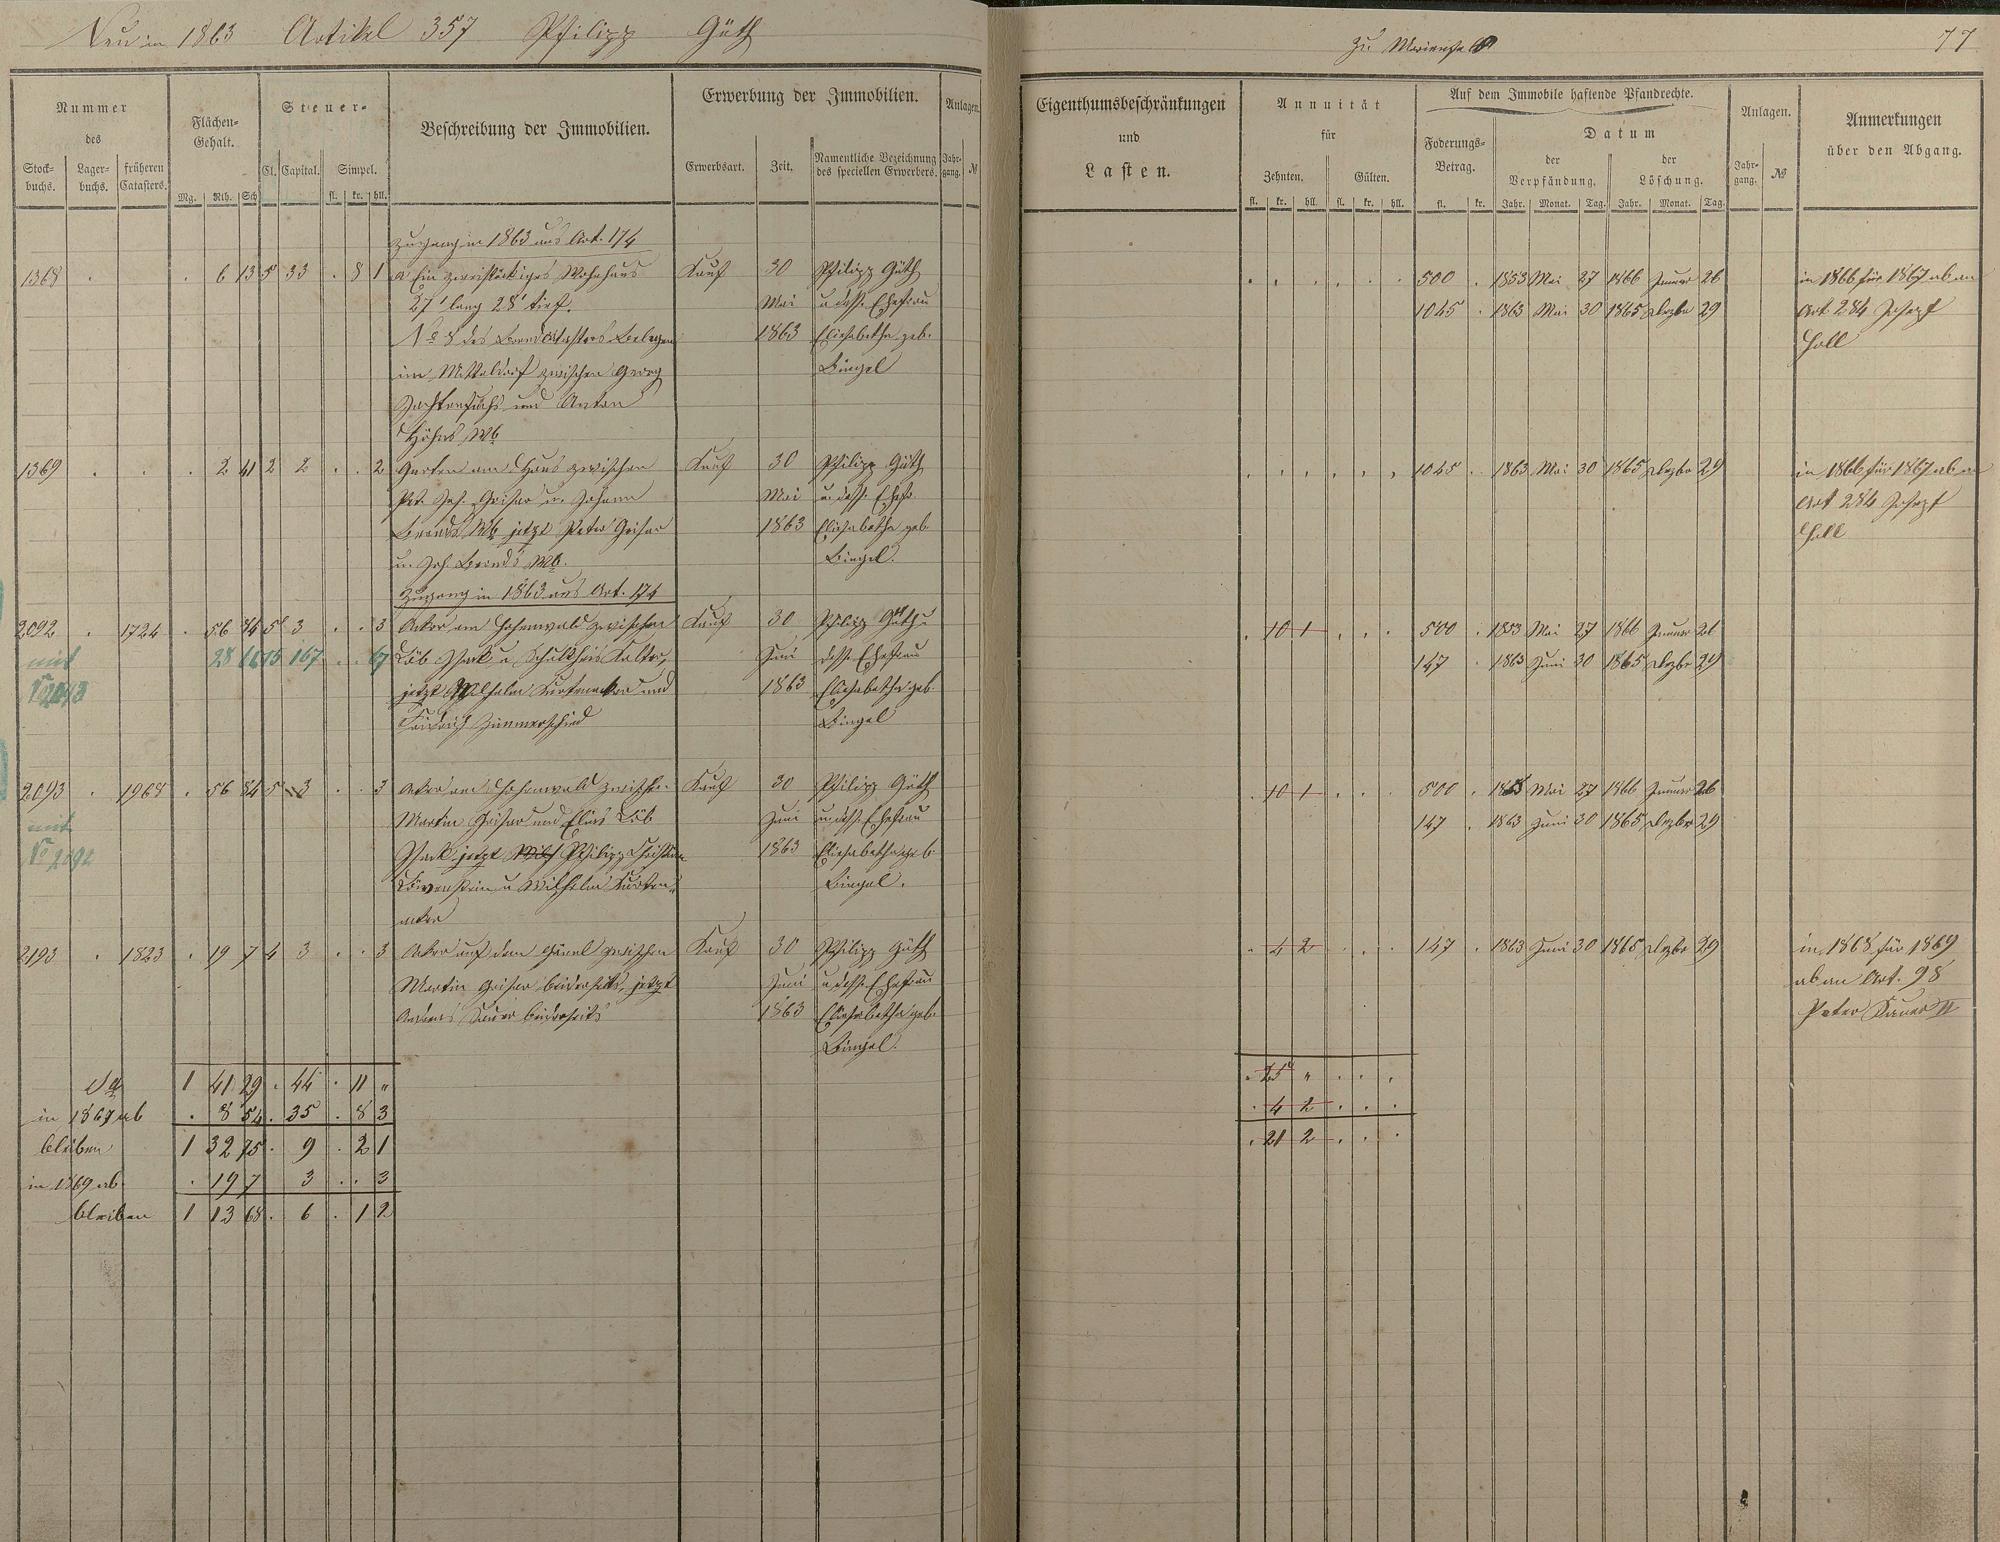 Neu in 1863 Artikel 357 Philipp Güth
Nummer
des
Stock-
buchs.
Lager-
buchs.
früheren
Catasters.
Flächen-
Gehalt.
Mg. Rth. Sch
Steuer-
Cl. Capital. Simpel.
fl. kr. hll.
Beschreibung der Immobilien.
Erwerbung der Immobilien.
Erwerbsart. Zeit.
Namentliche Bezeichnung
des speciellen Erwerbers.
Anlagen.
Jahr-
gang. №
Zugang in 1863 aus Art. 174
1368 . . 6 13 5 33 . 8 1 a Ein zweistöckiges Wohnhaus Kauf 30 Philipp Güth
27' lang 28' tief. Mai u dess. Ehefrau
No 8 des Brandcatasters Belegen 1863 Elisabetha geb.
im Mitteldorf zwischen Georg Bingel
und Anton
Höhns Wb
1369 . . . 2 41 2 2 . . 2 Garten am Haus zwischen Kauf 30 Philipp Güth
Pet. Joh. Geisar u. Johann Mai u. dess. Ehefr
Brands Wb jetzt Peter Geisar 1863 Elisabetha geb.
u. Joh. Brands Wb. Bingel.
Zugang in 1863 aus Art. 174
2092 . 1724 . 56 84 5 3 . . 3 Acker am Hohenwald zwischen Kauf 30 Philipp Güth u
mit 28 167 . . 67 Löb Isack u Schultheis Kalter, Juni dess. Ehefrau
No 2093 jetzt Wilhelm Kurtenacker und 1863 Elisabetha geb.
Friedrich Zimmerschied Bingel
2093 . 1968 . 56 84 5 3 . . 3 Acker am Hohenwald zwischen Kauf 30 Philipp Güth
mit Martin Geisar und Elias Löb Juni u dess. Ehefrau
No 2092 Isack jetzt Philipp Christian 1863 Elisabetha geb.
Löwenstein u Wilhelm Kurten- Bingel.
acker
2193 . 1823 . 19 7 4 3 . . 3 Acker auf dem zwischen Kauf 30 Philipp Güth
Martin Geisar beiderseits, jetzt Juni u dess. Ehefrau
Andreas beiderseits 1863 Elisabetha geb.
Bingel.
Sa 1 41 29 . 44 . 11 „
in 1867 ab . 8 54 . 35 . 8 3
bleiben 1 32 75 . 9 . 2 1
in 1869 ab . 19 7 3 . . 3
bleiben 1 13 68 . 6 . 1 2
zu Marienfels
77
Eigenthumsbeschränkungen
und
Lasten.
Annuität
für
Zehnten. Gülten.
fl. kr. hll. fl. kr. hll.
Auf dem Immobile haftende Pfandrechte.
Foderungs-
Betrag.
fl. kr.
Datum
der
Verpfändung.
der
Löschung.
Jahr. Monat. Tag. Jahr. Monat. Tag.
Anlagen.
Jahr-
gang. №
Anmerkungen
über den Abgang.
500 . 1853 Mai 27 1866 Januar 26 in 1866 für 1867 ab an
1045 . 1863 Mai 30 1865 Dezbr 29 Art 284 Joseph
Hall
1045 . 1863 Mai 30 1865 Dezbr 29 in 1866 für 1867 ab an
Art 284 Joseph
Hall
. 10 1 . . . 500 . 1853 Mai 27 1866 Januar 26
147 . 1863 Juni 30 1865 Dezbr 29
. 10 1 . . . 500 . 1853 Mai 27 1866 Januar 26
147 . 1863 Juni 30 1865 Dezbr 29
. 4 2 . . . 147 . 1863 Juni 30 1865 Dezbr 29 in 1868 für 1869
ab an Art. 98
Peter Kauer II
. 25 „ . . .
. 4 2 . . .
. 21 2 . . .